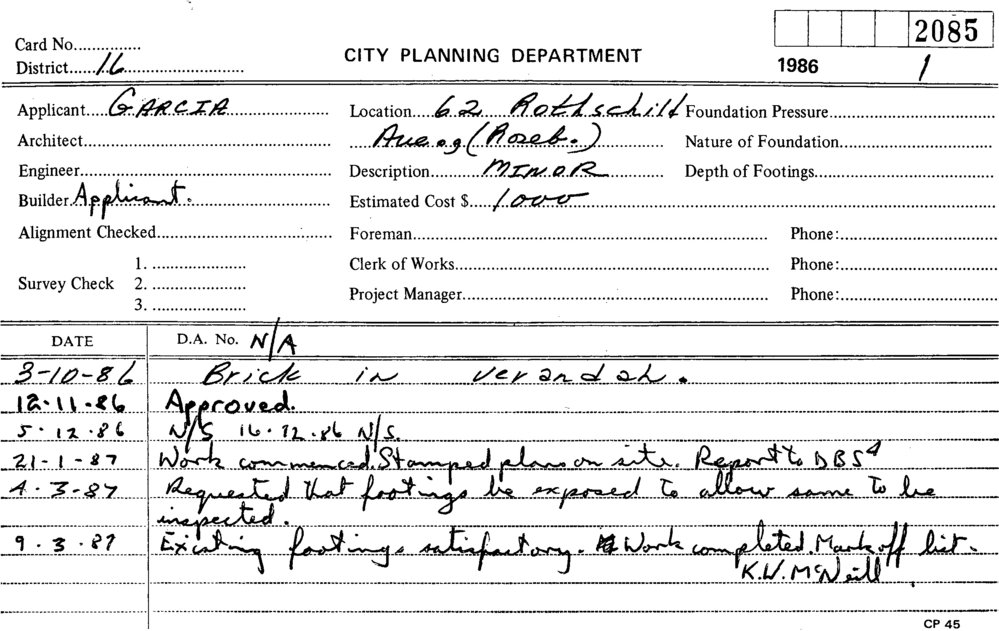 Card No............... 2085
District.....16........................... CITY PLANNING DEPARTMENT 1986 1
Applicant....GARCIA.................... Location....62 Rothschild Foundation Pressure...........................
Architect.................................................. Ave (Roseb.)............ Nature of Foundation.........................
Engineer.................................................. Description...........MINOR............ Depth of Footings..............................
Builder.Applicant............................ Estimated Cost $.....1000.....................................................
Alignment Checked............................... Foreman.................................................................. Phone:............................
1. .....................
Clerk of Works........................................................ Phone:............................
Survey Check 2. .....................
Project Manager...................................................... Phone:............................
3. .....................
DATE D.A. No. N/A
3-10-86 Brick in verandah.
12.11.86 Approved.
5.12.86 N/S 16.12.86 N/S.
21-1-87 Work commenced. Stamped plans on site. Report to DBS4
4.3.87 Requested that footings be exposed to allow same to be
inspected.
9.3.87 Existing footings satisfactory. Work completed. Mark off list.
K.W. McNeill
CP 45